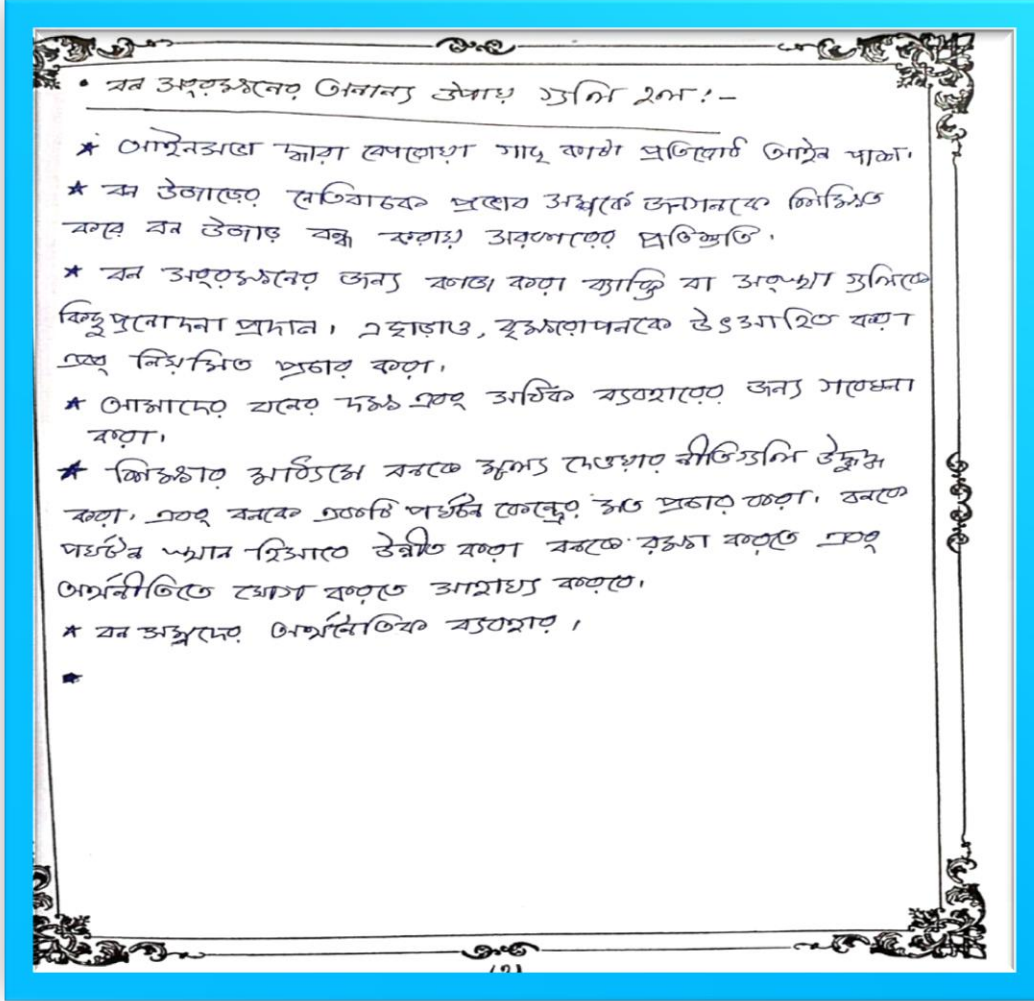 • বন সংরক্ষনের অনান্য উপায় গুলি হল:-
* আইনসভা দ্বারা বেপরোয়া গাছ কাটা প্রতিরোধ আইন পাশ।
* বন উজাড়ের নেতিবাচক প্রভাব সম্পর্কে জনগনকে শিক্ষিত
করে বন উজাড় বন্ধ করায় সরকারের প্রতিশ্রুতি।
* বন সংরক্ষনের জন্য কাজ করা ব্যাক্তি বা সংস্থা গুলিকে
কিছু প্রনোদনা প্রদান। এছাড়াও, বৃক্ষরোপনকে উৎসাহিত করা
এবং নিয়মিত প্রচার করা।
* আমাদের বনের দক্ষ এবং সঠিক ব্যবহারের জন্য গবেষনা
করা।
* শিক্ষার মাধ্যমে বনকে মূল্য দেওয়ার নীতিগুলি উদ্বুদ্ধ
করা। এবং বনকে একটি পর্যটন কেন্দ্রের মত প্রচার করা। বনকে
পর্যটন স্থান হিসাবে উন্নীত করা বনকে রক্ষা করতে এবং
অর্থনীতিতে যোগ করতে সাহায্য করবে।
* বন সম্পদের অর্থনৈতিক ব্যবহার।
*